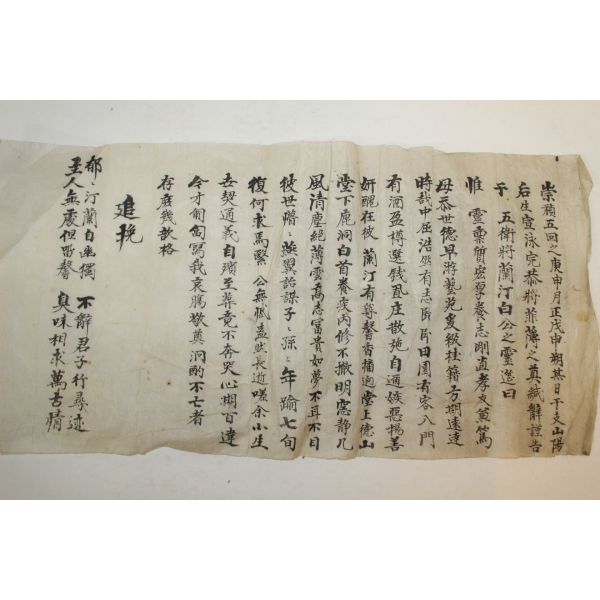 崇禎五回之庚申月正戊申朔某日干支山陽
后生宣泳完恭將菲薄之奠緘辭謹告
于 五衛將蘭汀白公之靈筵曰
惟 靈稟質宏厚養志剛直孝友兼篤
母忝世德早游藝苑爰發桂籍方期遠達
時哉中屈浩然有志卧田園有客入門
有酒盈樽選錢買庄散施自適嫉惡揚善
妍醜在彼 蘭汀有蕚馨香播逈堂上德山
堂下鹿洞白首養疾內修不撤明窓静几
風清塵絕薄雲高志富貴如夢不耳不目
彼世腊〻燕翼詒謀子〻孫〻年踰七旬
復何求焉繄 公無憾盍然長逝嗟余小生
去契通義自殯至葬竟不奔哭心期百違
今才匍匐寫我哀膓敬奠泂酌不亡者
存庶幾歆格
追挽
郁〻汀蘭自幽獨 不辭君子行尋迹
至人無處但留馨 臭味相求萬古情